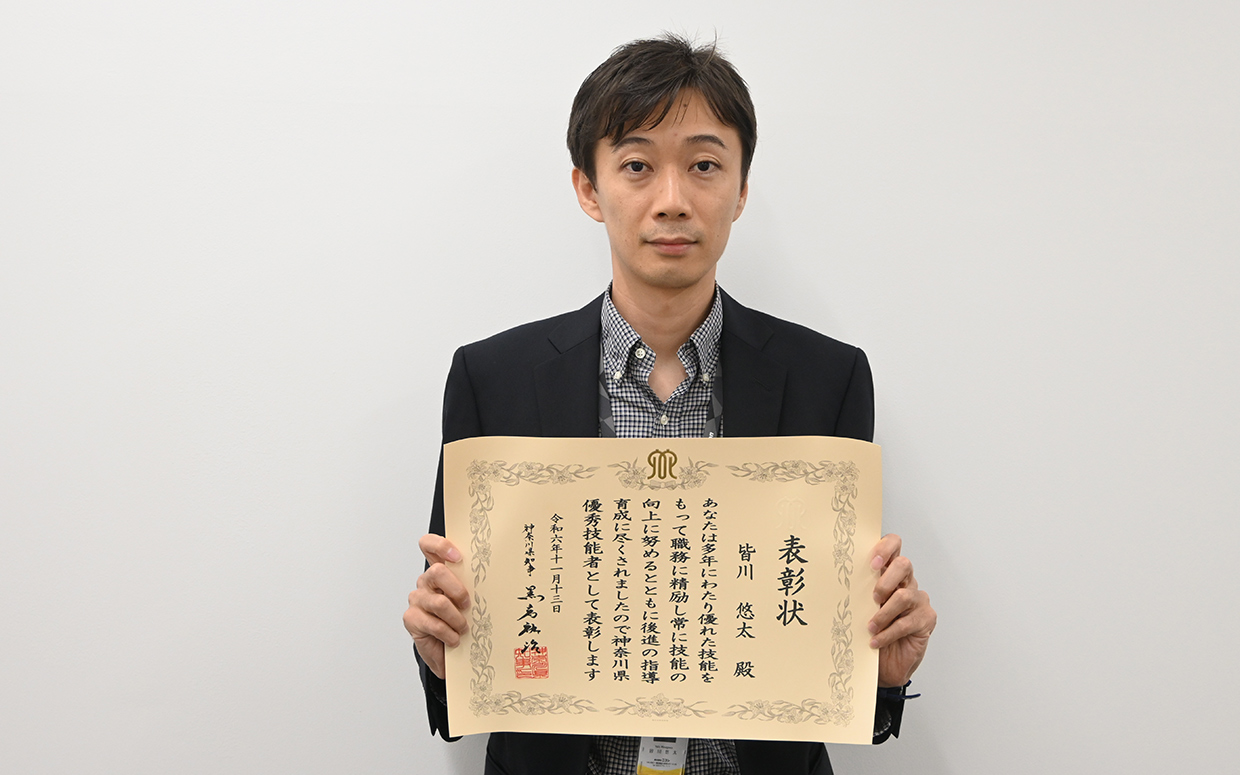 表彰状
皆川 悠太 殿
あなたは多年にわたり優れた技能を
もって職務に精励し常に技能の
向上に努めるとともに後進の指導
育成に尽くされましたので神奈川県
優秀技能者として表彰します
令和六年十一月十三日
神奈川県知事 黒岩祐治